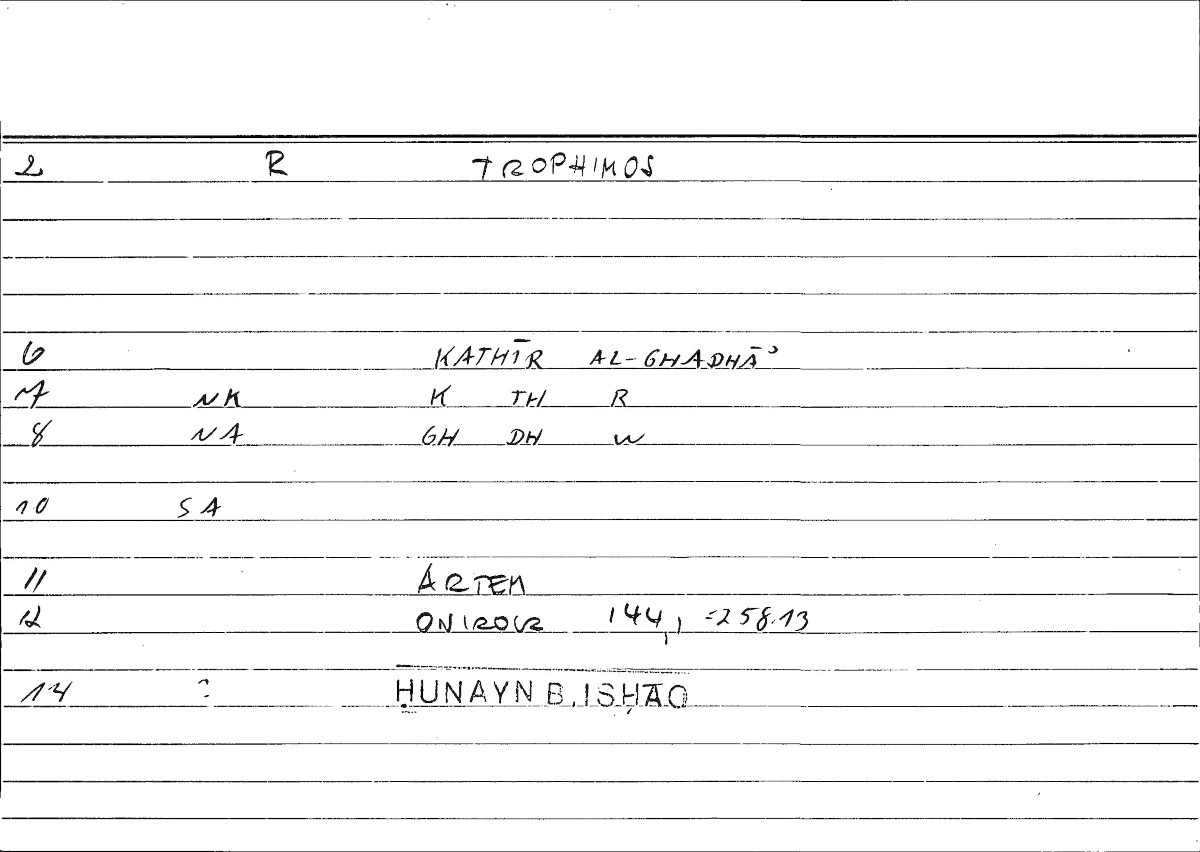 2 R TROPHIMOS
6 KATHĪR AL-GHADHĀʾ
7 NK K TH R
8 NA GH DH W
10 SA
11 ARTEM
12 ONIROCR 144,1 =258.13
14 ? ḤUNAYN B. ISḤĀQ